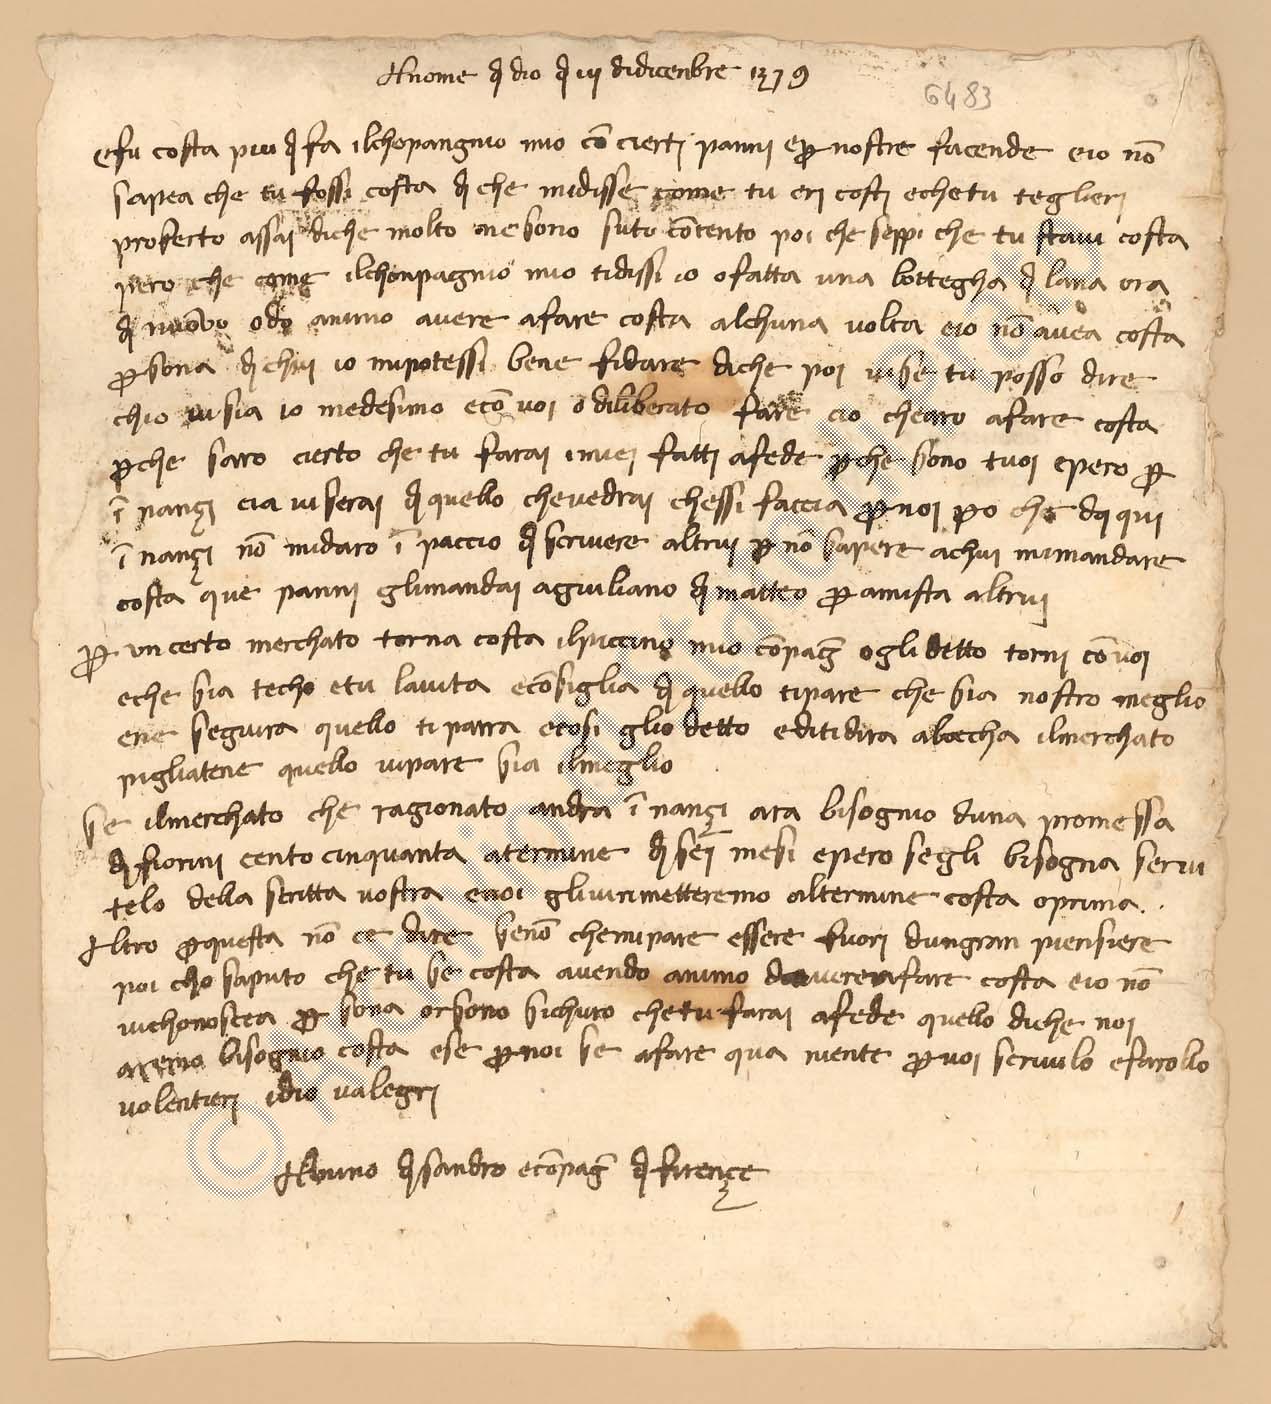 Al nome di dio di iii di dicenbre 1379
6483
E fu costa piu di fa il chopangnio mio cō cierti panni e p nostre facende e io nō
sapea che tu fossi costa di che mi disse come tu eri costi e che tu te gli eri
proferto assai di che molto ne sono suto cōtento poi che seppi che tu stavi costa
pero che come il chonpagnio mio ti dissi io o fatta una bottegha di lana ora
di nuovo e do animo avere a fare costa alchuna volta e io nō avea costa
p sona di chui io mi potessi bene fidare di che poi vi se tu posso dire
ch io vi sia io medesimo e cō voi o diliberato fare cio che aro a fare costa
p che saro cierto che tu farai i miei fatti a fede p che sono tuoi e pero p
ī nançi cia viserai di quello che vedrai che ssi faccia p noi po che da qui
ī nançi nō mi daro ī paccio di scrivere altrui p nō sapere a chui mi mandare
costa que panni gli mandai a giuliano di matteo p amista altrui
P un certo merchato torna costa il puccino mio cōpag o gli detto torni cō voi
e che sia techo e tu l aiuta e cōsiglia di quello ti pare che sia nostro meglio
e ne seguira quello ti parra e cosi gli o detto e di ti dira a boccha il merchato
pigliatene quello vi pare sia il meglio
Se il merchato che ragionato andra ī nançi ara bisognio d una promessa
di fiorini cento cinquanta a termine di sei mesi e pero se gli bisogna servi
telo della scritta vostra e noi gli vi rimetteremo al termine costa o prima .
Altro p questa nō ce dire senō che mi pare essere fuori d un gran piensiere
poi ch o saputo che tu se costa avendo animo d avere a fare costa e io nō
vi chonoscea p sona or sono sichuro che tu farai a fede quello di che noi
aremo bisognio costa e se p noi se a fare qua niente p voi scrivilo e farollo
volentieri idio va legri
Nuno di sandro e cōpag di firençe